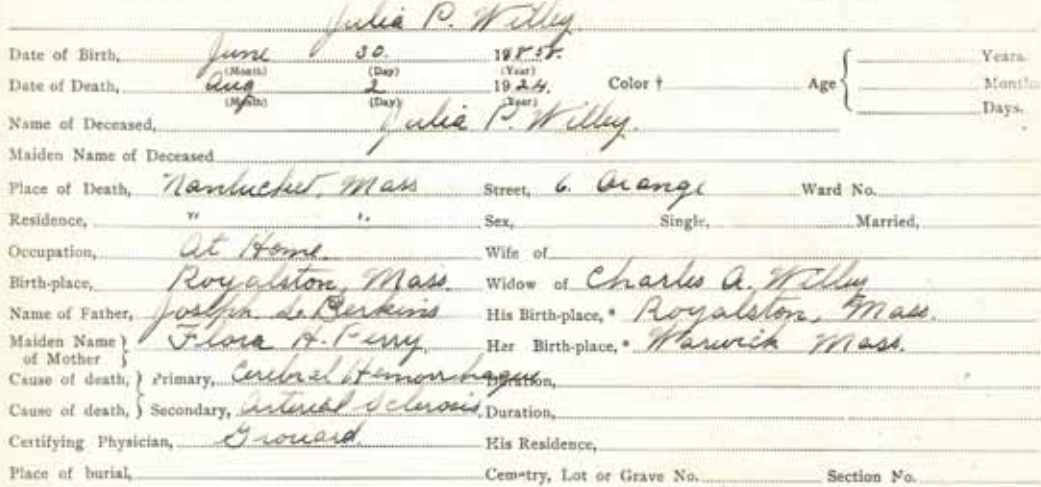 Julia P. Willey.
Date of Birth, June 30. 1858.
(Month) (Day) (Year)
Date of Death, Aug 2 1924. Color † Age { Years. Months Days.
(Month) (Day) (Year)
Name of Deceased, Julia P. Willey.
Maiden Name of Deceased
Place of Death, Nantucket, Mass Street, 6. Orange Ward No.
Residence, " " Sex, Single, Married,
Occupation, At Home. Wife of
Birth-place, Royalston, Mass. Widow of Charles A. Willey
Name of Father, Joseph L. Perkins His Birth-place,* Royalston, Mass.
Maiden Name of Mother } Flora H. Perry, Her Birth-place,* Warwick Mass.
Cause of death, } Primary, Cerebral Hemorrhague Duration,
Cause of death, } Secondary, Arterial Sclerosis, Duration,
Certifying Physician, Grouard. His Residence,
Place of burial, Cemetry, Lot or Grave No. Section No.